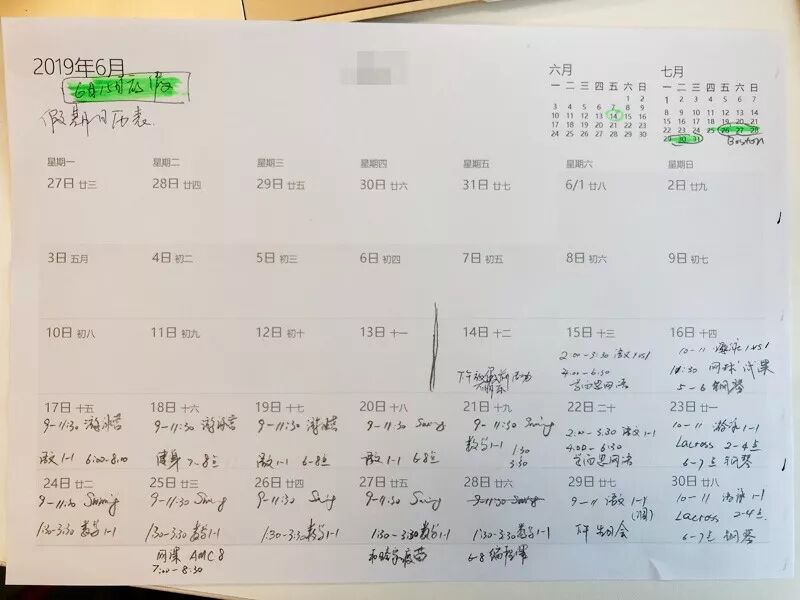 2019年6月
6月15日放假
假期日历表
六月
一 二 三 四 五 六 日
1 2
3 4 5 6 7 8 9
10 11 12 13 14 15 16
17 18 19 20 21 22 23
24 25 26 27 28 29 30
七月
一 二 三 四 五 六 日
1 2 3 4 5 6 7
8 9 10 11 12 13 14
15 16 17 18 19 20 21
22 23 24 25 26 27 28
29 30 31
Boston
星期一 星期二 星期三 星期四 星期五 星期六 星期日
27日 廿三 28日 廿四 29日 廿五 30日 廿六 31日 廿七 6/1 廿八 2日 廿九
3日 五月 4日 初二 5日 初三 6日 初四 7日 初五 8日 初六 9日 初七
10日 初八 11日 初九 12日 初十 13日 十一 14日 十二 15日 十三 16日 十四
2:00-3:30 语文1vs1
4:00-6:30
10-11 游泳1vs1
11:30 网球试课
5-6 钢琴
17日 十五 18日 十六 19日 十七 20日 十八 21日 十九 22日 二十 23日 廿一
9-11:30 游泳营
语文1-1 6:00-8:00
9-11:30 游泳营
健身 7-8点
9-11:30 游泳营
语文1-1 6-8点
9-11:30
语文1-1 6-8点
9-11:30
数学1-1 1:30
3:30
2:00-3:30 语文1-1
4:00-6:30
10-11 游泳1-1
Lacross 2-4点
6-7点 钢琴
24日 廿二 25日 廿三 26日 廿四 27日 廿五 28日 廿六 29日 廿七 30日 廿八
9-11:30
1:30-3:30 数学1-1
9-11:30
1:30-3:30 数学1-1
网课 AMC8
7:00-8:30
9-11:30
1:30-3:30 数学1-1
9-11:30
1:30-3:30 数学1-1
疫苗
9-11:30
1:30-3:30 数学1-1
6-8 编程课
9-11 语文1-1
下午 生日会
10-11 游泳1-1
Lacross 2-4点
6-7点 钢琴